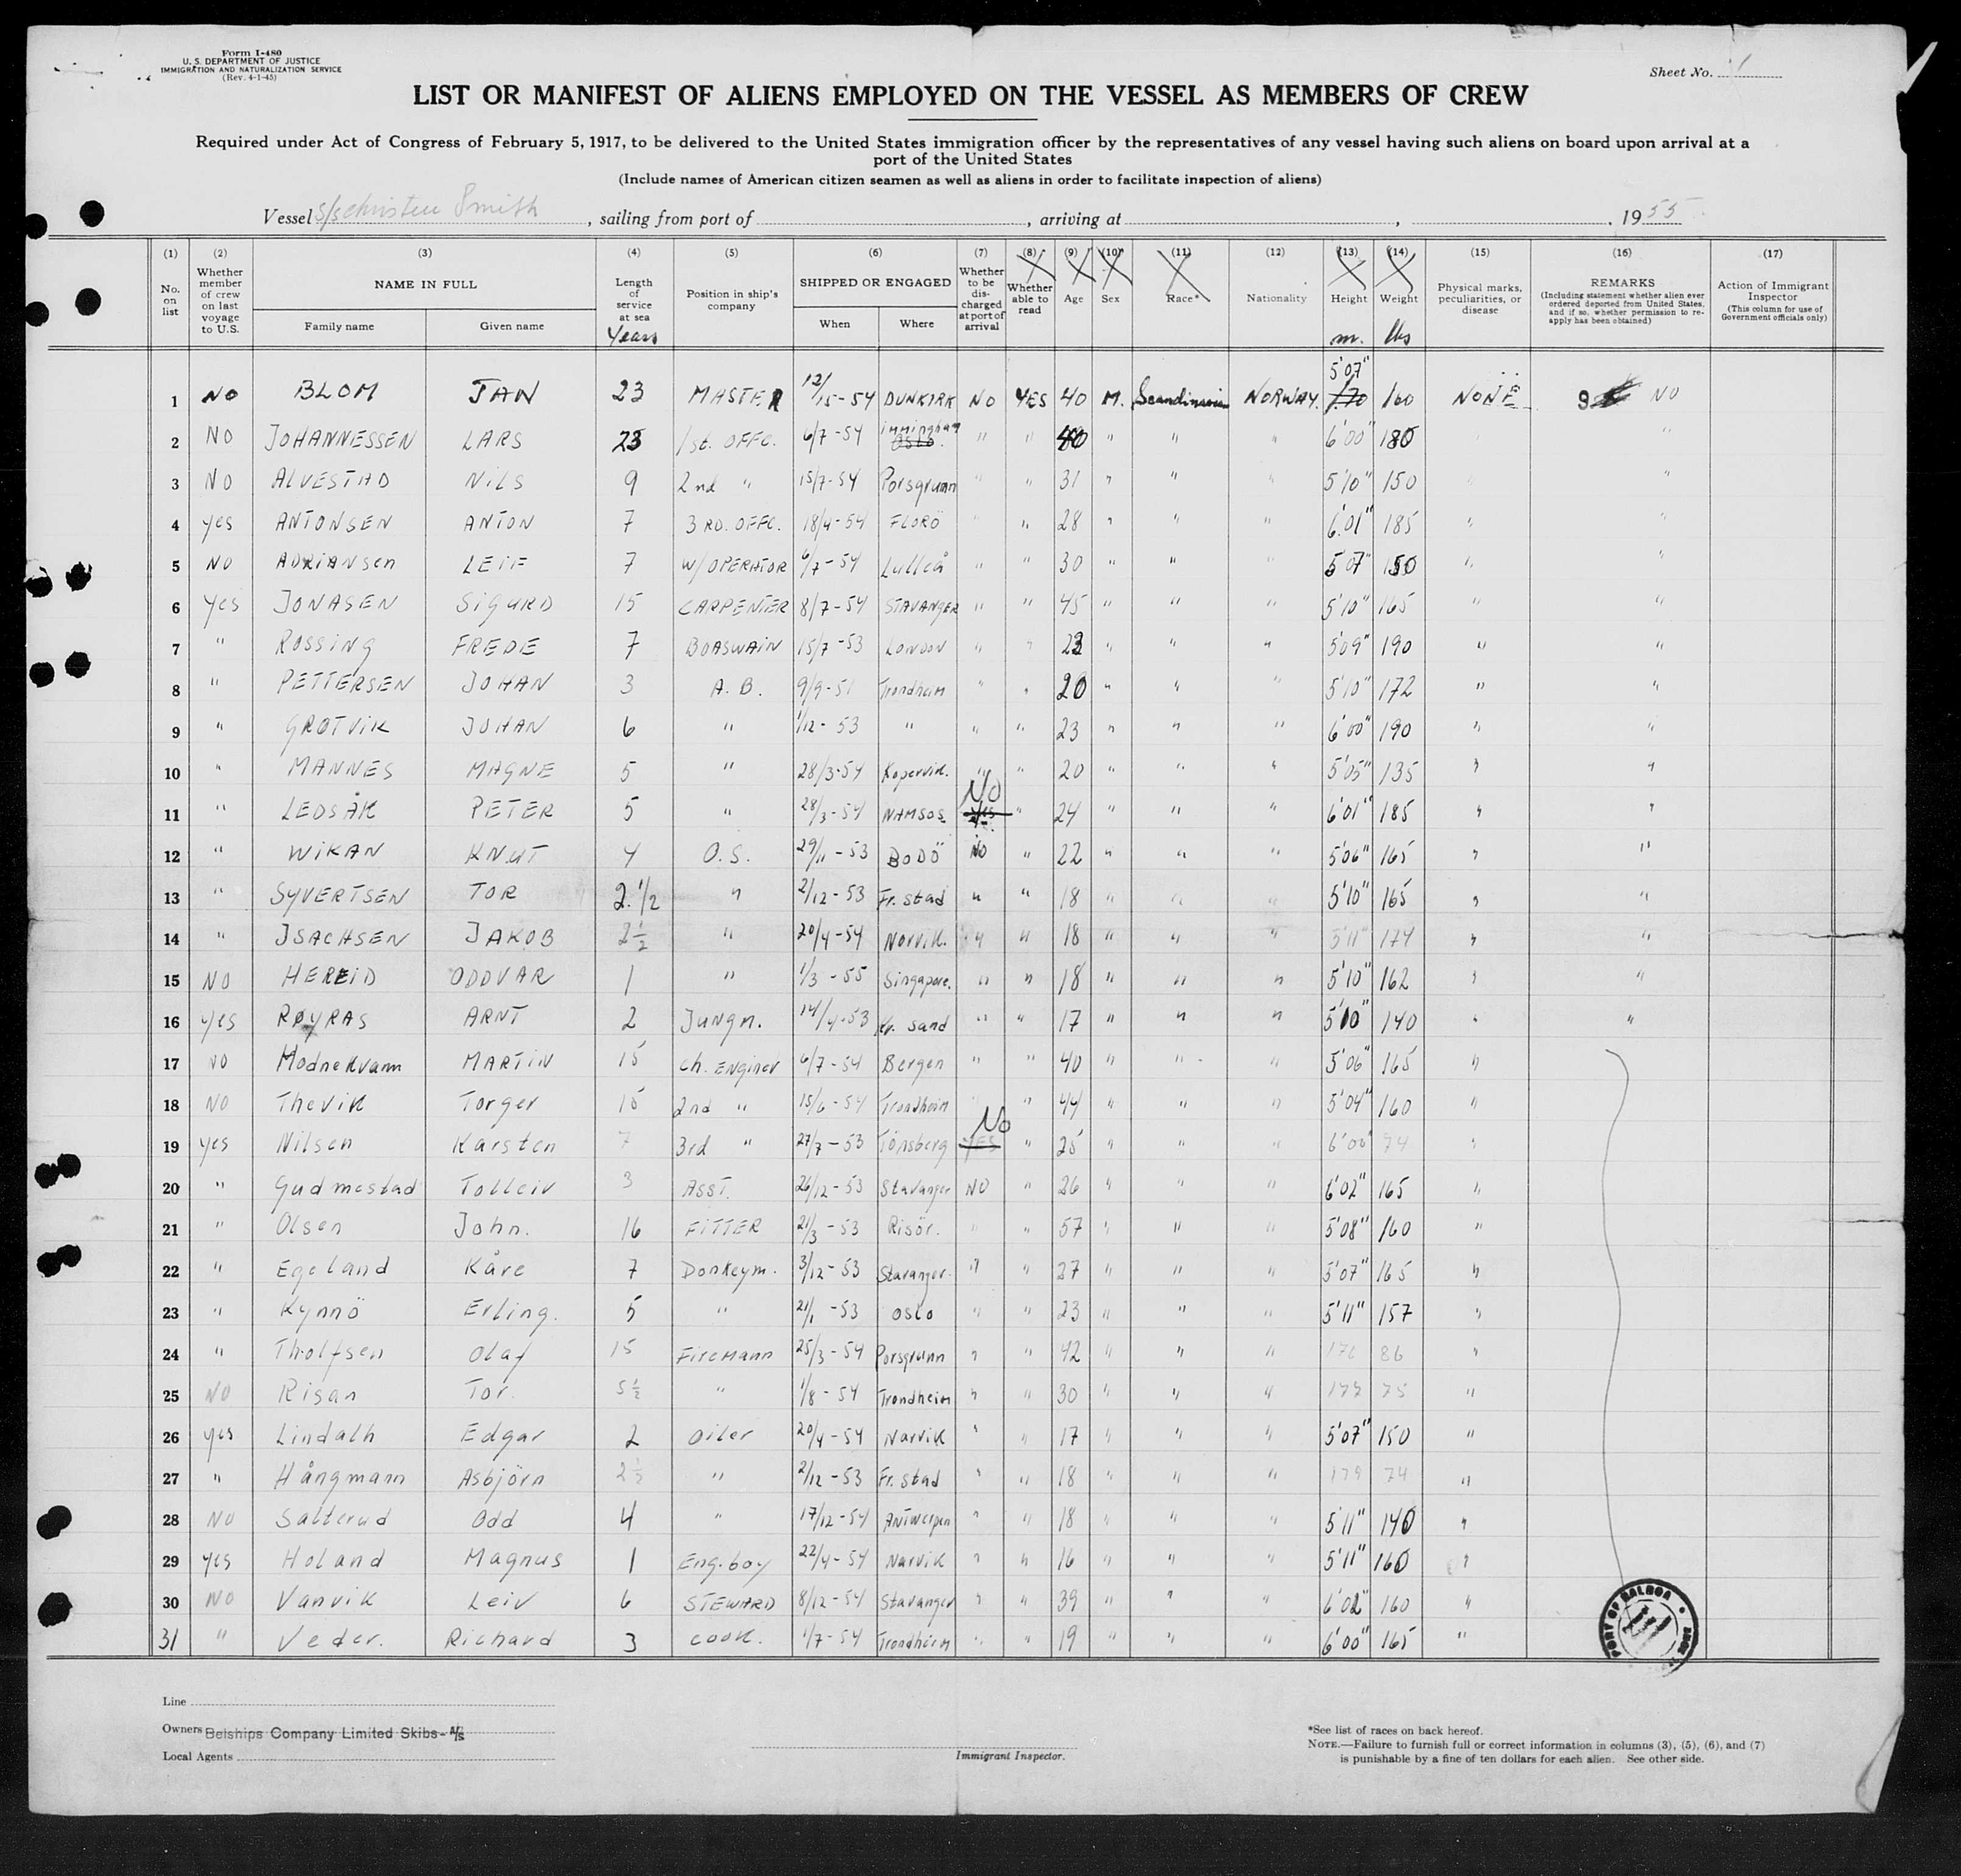 Form I-480
U. S. DEPARTMENT OF JUSTICE
IMMIGRATION AND NATURALIZATION SERVICE
(Rev. 4-1-45)
Sheet No. 1
LIST OR MANIFEST OF ALIENS EMPLOYED ON THE VESSEL AS MEMBERS OF CREW
Required under Act of Congress of February 5, 1917, to be delivered to the United States immigration officer by the representatives of any vessel having such aliens on board upon arrival at a
port of the United States
(Include names of American citizen seamen as well as aliens in order to facilitate inspection of aliens)
Vessel S/S Christen Smith, sailing from port of , arriving at , , 1955
(1) (2) (3) (4) (5) (6) (7) (8) (9) (10) (11) (12) (13) (14) (15) (16) (17)
No. on list Whether member of crew on last voyage to U.S. NAME IN FULL Family name Given name Length of service at sea Years Position in ship's company SHIPPED OR ENGAGED When Where Whether to be discharged at port of arrival Whether able to read Age Sex Race* Nationality Height m. Weight lbs Physical marks, peculiarities, or disease REMARKS (Including statement whether alien ever ordered deported from United States, and if so, whether permission to reapply has been obtained) Action of Immigrant Inspector (This column for use of Government officials only)
1 NO BLOM JAN 23 MASTER 12/15-54 DUNKIRK NO YES 40 M. Scandinavian NORWAY. 5'07" 1.70 160 NONE NO
2 NO JOHANNESSEN LARS 23 1st. OFFC. 6/7-54 immingham OSLO. " " 40 " " " 6'00" 180 " "
3 NO ALVESTAD NILS 9 2nd " 15/7-54 Porsgrunn " " 31 " " " 5'10" 150 " "
4 yes ANTONSEN ANTON 7 3RD. OFFC. 18/4-54 FLORÖ " " 28 " " " 6'01" 185 " "
5 NO ADRIANSEN LEIF 7 W/OPERATOR 6/7-54 Lulleå " " 30 " " " 5'07" 150 " "
6 yes JONASEN SIGURD 15 CARPENTER 8/7-54 STAVANGER " " 45 " " " 5'10" 165 " "
7 " ROSSING FREDE 7 BOASWAIN 15/7-53 LONDON " " 23 " " " 5'09" 190 " "
8 " PETTERSEN JOHAN 3 A.B. 9/9-51 Trondheim " " 20 " " " 5'10" 172 " "
9 " GRØTVIK JOHAN 6 " 1/12-53 " " " 23 " " " 6'00" 190 " "
10 " MANNES MAGNE 5 " 28/3-54 Kopervik. " " 20 " " " 5'05" 135 " "
11 " LEDSÅK PETER 5 " 28/3-54 NAMSOS No yes " 24 " " " 6'01" 185 " "
12 " WIKAN KNUT 4 O.S. 29/11-53 BODÖ NO " 22 " " " 5'06" 165 " "
13 " SYVERTSEN TOR 2.1/2 " 2/12-53 Fr. stad " " 18 " " " 5'10" 165 " "
14 " ISACHSEN JAKOB 2 1/2 " 20/4-54 Norvik. " " 18 " " " 5'11" 174 " "
15 NO HEREID ODDVAR 1 " 1/3-55 Singapore. " " 18 " " " 5'10" 162 " "
16 yes RØYRAS ARNT 2 Jungm. 14/4-53 Kr. sand " " 17 " " " 5'10" 140 " "
17 NO Modnekvam MARTIN 15 Ch. ENginer 6/7-54 Bergen " " 40 " " " 5'06" 165 "
18 NO Thevik Torger 15 2nd " 15/6-54 Trondheim " " 44 " " " 5'04" 160 "
19 yes Nilsen Karsten 7 3rd " 27/7-53 Tönsberg No YES " 25 " " " 6'00" 94 "
20 " Gudmestad Tolleiv 3 ASST. 26/12-53 Stavanger NO " 26 " " " 6'02" 165 "
21 " Olsen John. 16 FITTER 21/3-53 Risör. " " 57 " " " 5'08" 160 "
22 " Egeland Kåre 7 Donkeym. 3/12-53 Stavanger. " " 27 " " " 5'07" 165 "
23 " Kynnö Erling. 5 " 21/1-53 OSLO " " 23 " " " 5'11" 157 "
24 " Tholfsen Olaf 15 Firemann 25/3-54 Porsgrunn " " 42 " " " 176 86 "
25 NO Risan Tor. 5 1/2 " 1/8-54 Trondheim " " 30 " " " 75 "
26 yes Lindalh Edgar 2 Oiler 20/4-54 Narvik " " 17 " " " 5'07" 150 "
27 " Hångmann Asbjörn 2 1/2 " 2/12-53 Fr. stad " " 18 " " " 179 74 "
28 NO Salterud Odd 4 " 17/12-54 ANTWerpen " " 18 " " " 5'11" 140 "
29 yes Holand Magnus 1 Eng.boy 22/4-54 Narvik " " 16 " " " 5'11" 160 "
30 NO Vanvik Leiv 6 STEWARD 8/12-54 Stavanger " " 39 " " " 6'02" 160 "
31 " Veder. Richard 3 COOK. 1/7-54 Trondheim " " 19 " " " 6'00" 165 "
PORT OF BALBOA
Line
Owners Belships Company Limited Skibs-A/S
Local Agents
Immigrant Inspector.
*See list of races on back hereof.
NOTE.—Failure to furnish full or correct information in columns (3), (5), (6), and (7)
is punishable by a fine of ten dollars for each alien. See other side.